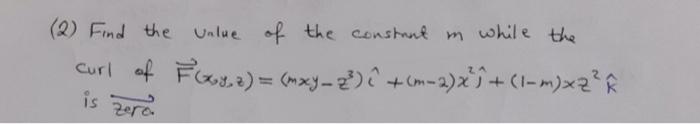 (2) Find the value of the constant m while the
curl of F⃗(x,y,z) = (mxy - z³) î + (m-2)x² ĵ + (1-m)xz² k̂
is zero.